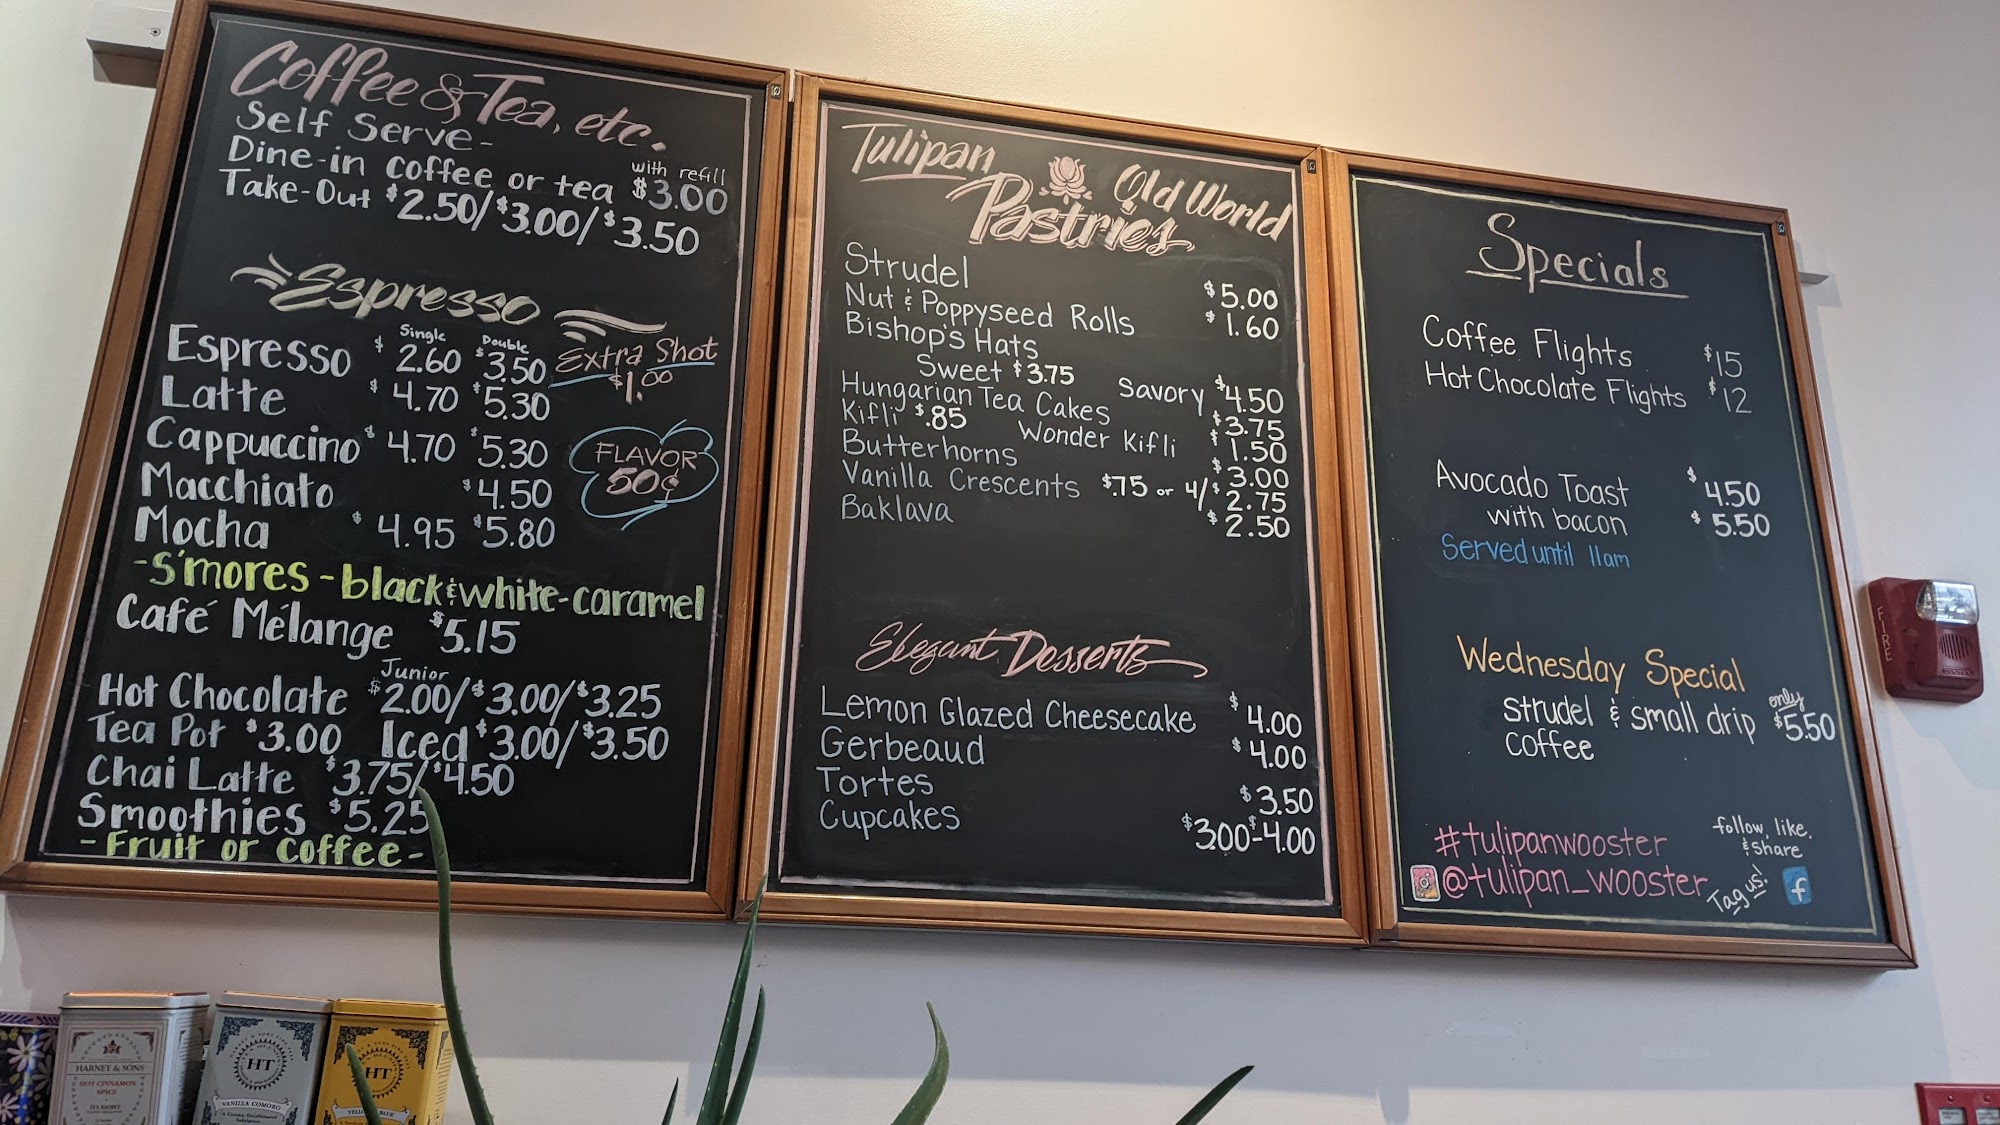 Coffee & Tea, etc.
Self Serve-
Dine-in coffee or tea with refill $3.00
Take-Out $2.50/$3.00/$3.50
Espresso
Single Double
Espresso $2.60 $3.50
Extra Shot
$1.00
Latte $4.70 $5.30
Cappuccino $4.70 $5.30
FLAVOR
50¢
Macchiato $4.50
Mocha $4.95 $5.80
-S'mores-black & white-caramel
Café Mélange $5.15
Junior
Hot Chocolate $2.00/$3.00/$3.25
Tea Pot $3.00 Iced $3.00/$3.50
Chai Latte $3.75/$4.50
Smoothies $5.25
-Fruit or coffee-
Tulipan Old World
Pastries
Strudel $5.00
Nut & Poppyseed Rolls $1.60
Bishop's Hats
Sweet $3.75 Savory $4.50
Hungarian Tea Cakes $3.75
Kifli $.85 Wonder Kifli $1.50
Butterhorns $3.00
Vanilla Crescents $.75 or 4/$2.75
Baklava $2.50
Elegant Desserts
Lemon Glazed Cheesecake $4.00
Gerbeaud $4.00
Tortes $3.50
Cupcakes $3.00-$4.00
Specials
Coffee Flights $15
Hot Chocolate Flights $12
Avocado Toast $4.50
with bacon $5.50
Served until 11am
Wednesday Special
strudel & small drip only $5.50
coffee
#tulipanwooster
follow, like,
& share
@tulipan_wooster
Tag us!
f
FIRE
HARNEY & SONS
HOT CINNAMON
SPICE
HT
VANILLA COMORO
HT